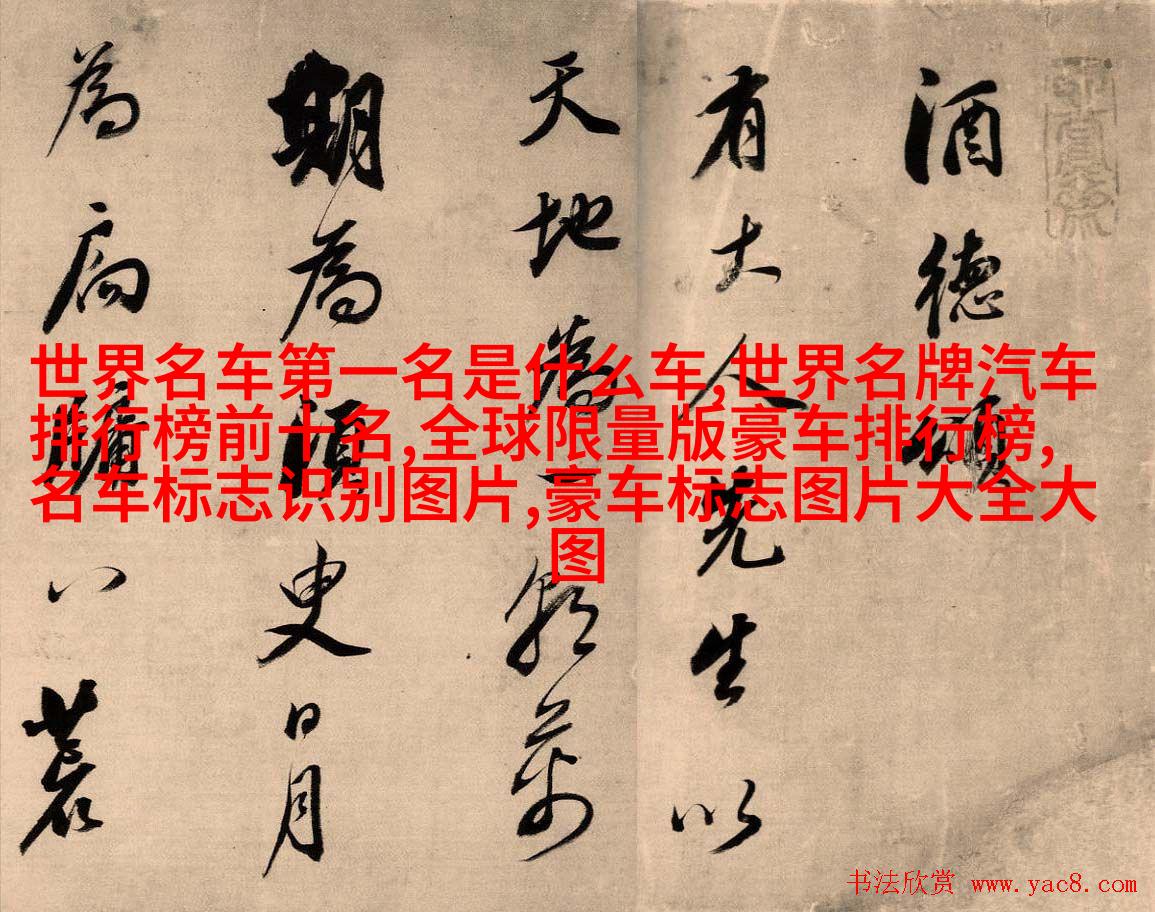 酒德頌
有大人先生以
天地為一朝萬
期為須臾日月
為扃牖八荒
世界名车第一名是什么车,世界名牌汽车
排行榜前十名,全球限量版豪车排行榜,
名车标志识别图片,豪车标志图片大全大
图
书法欣赏 www.yac8.com